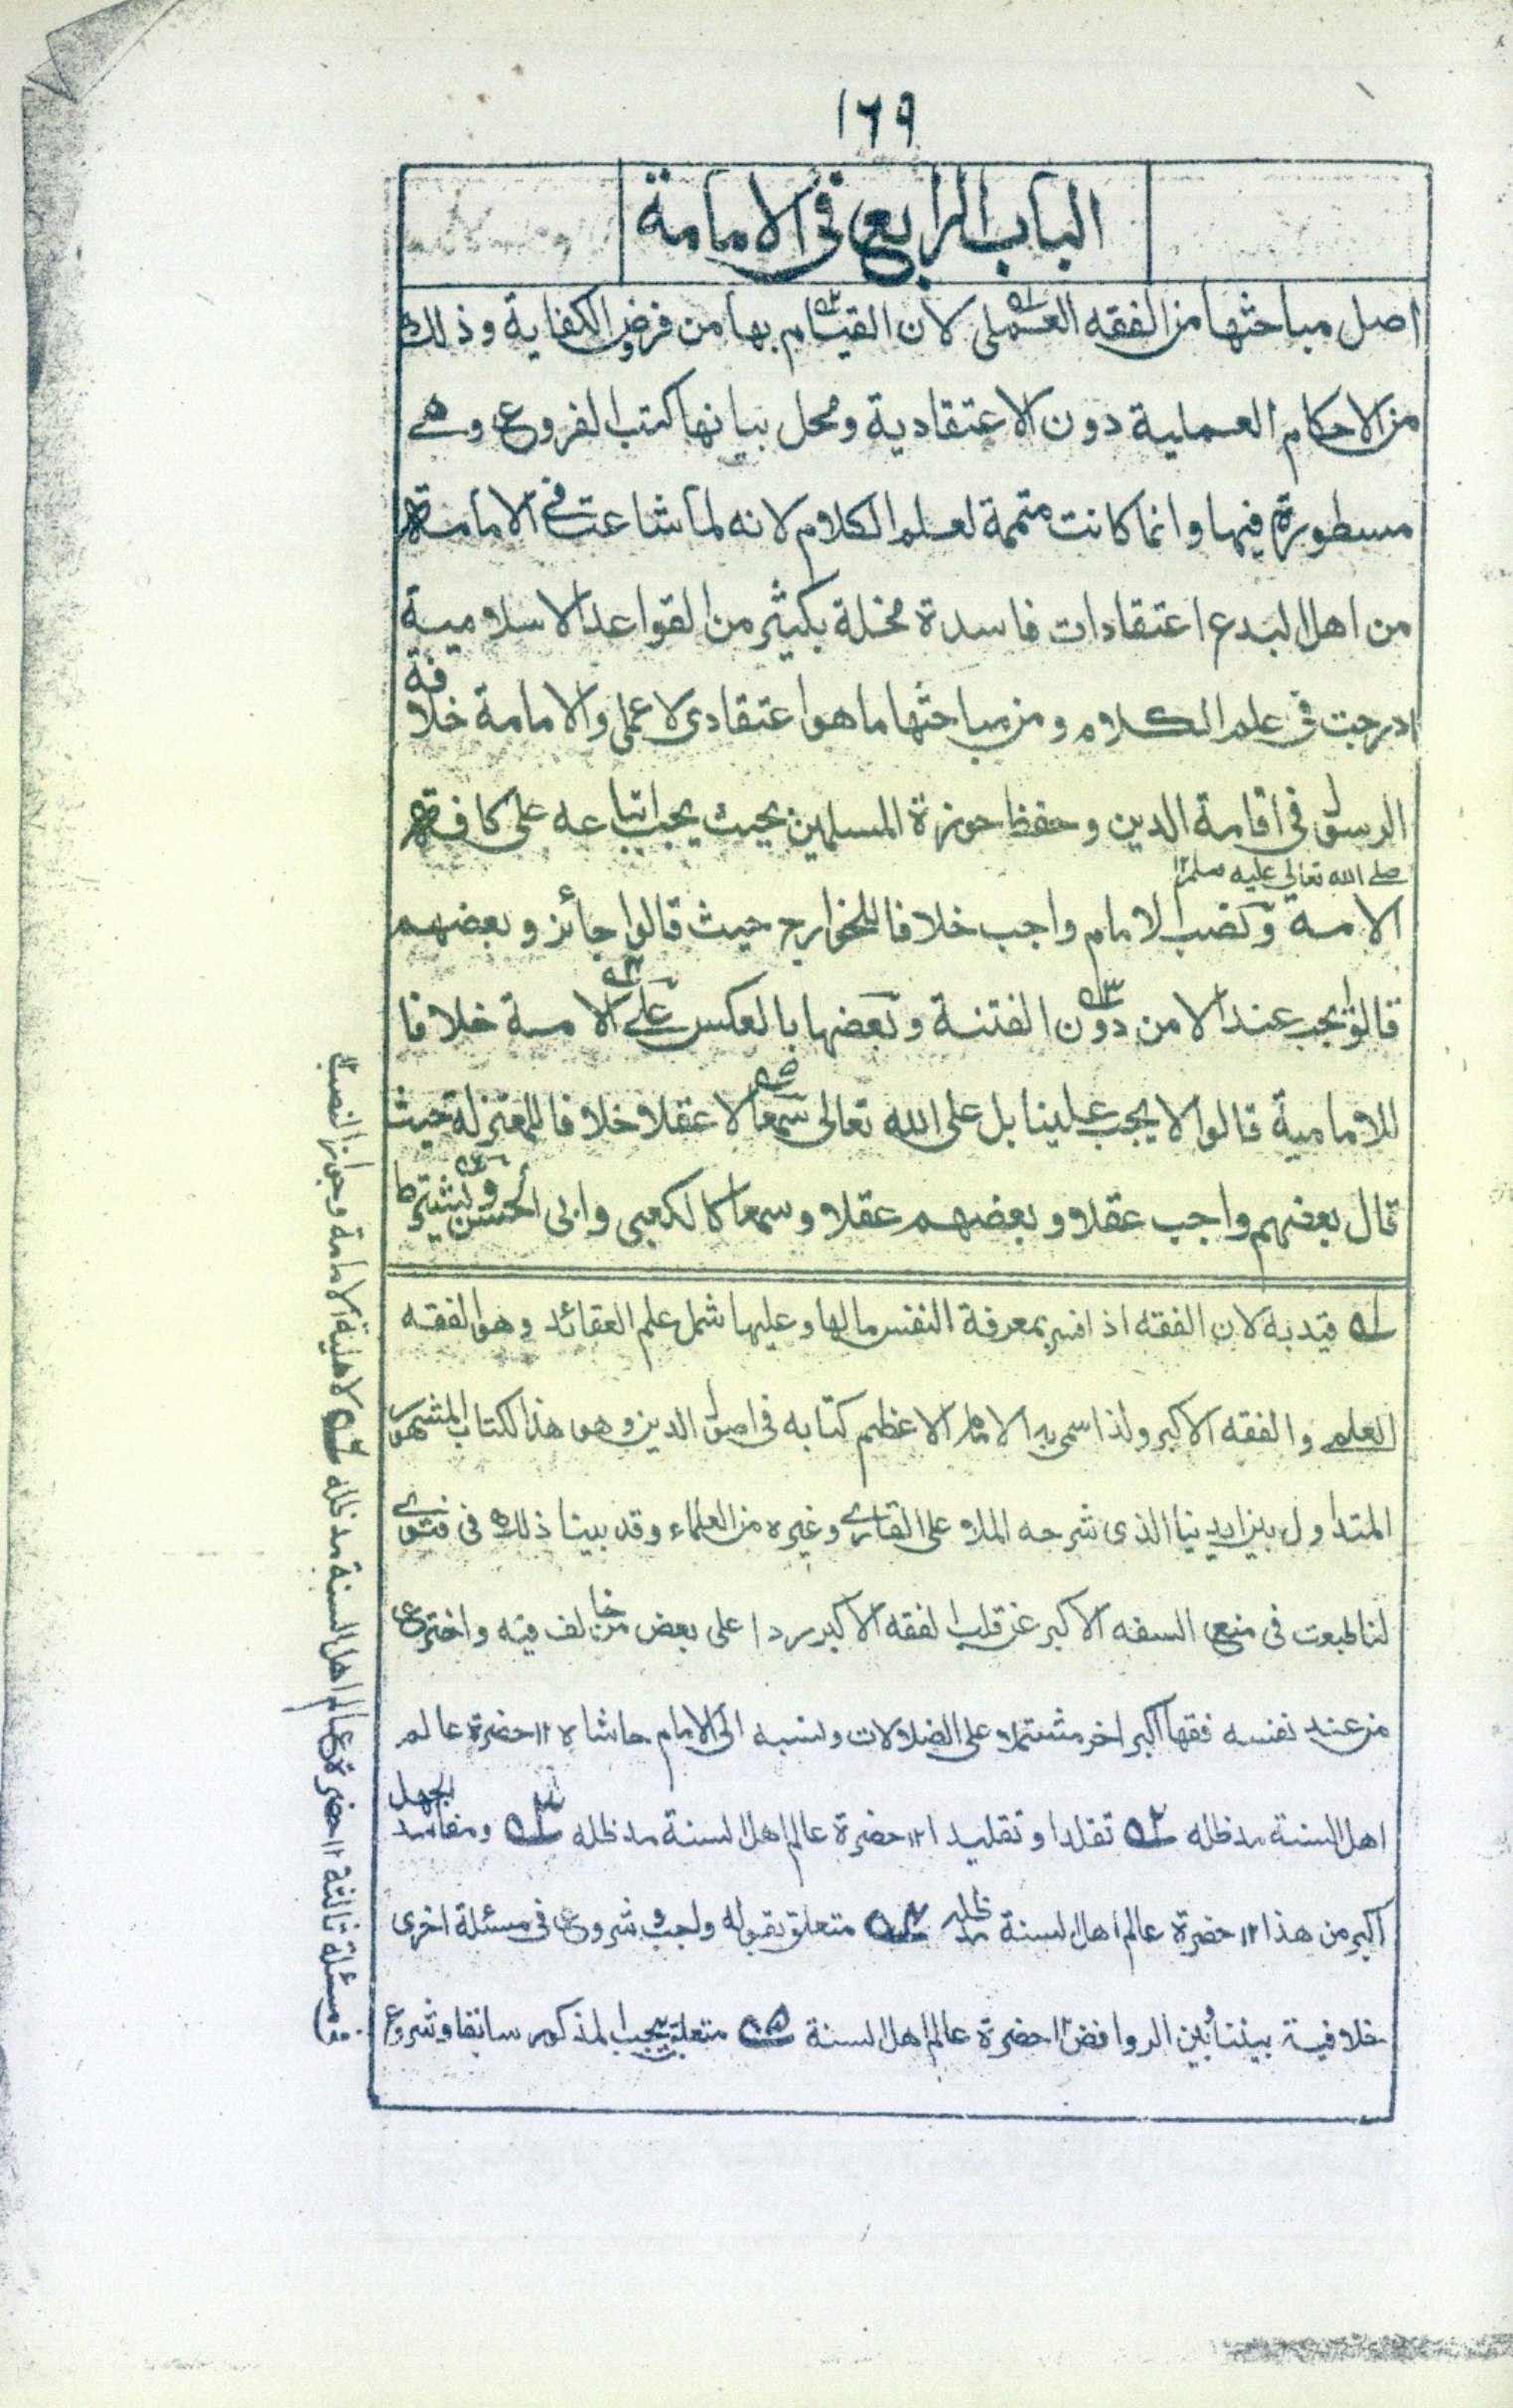 ١٦٩
الباب الرابع فى الامامة
اصل مباحثها من الفقه العملى لان القيام بها من فروض الكفاية وذلك
من الاحكام العملية دون الاعتقادية ومحل بيانها كتب الفروع وهے
مسطورة فيها وانما كانت متممة لعلم الكلام لانه لما شاعت فے الامامة
من اهل البدع اعتقادات فاسدة مخلة بكثير من القواعد الاسلامية
ادرجت فى علم الكلام ومن مباحثها ما هو اعتقادى لا عملى والامامة خلافة
الرسول فى اقامة الدين وحفظ حوزة المسلمين بحيث يجب اتباعه على كافة
صلے الله تعالى عليه وسلم ١٢
الامة ونصب الامام واجب خلافا للخوارج حيث قالوا جائز وبعضهم
قالوا يجب عند الامن دون الفتنة وبعضها بالعكس علے الامة خلافا
للامامية قالوا لا يجب علينا بل على الله تعالى سمعا لا عقلا خلافا للمعتزلة حيث
قال بعضهم واجب عقلا وبعضهم عقلا وسمعا كالكعبى وابى الحسين ويشترط
١ه قيد به لان الفقه اذا فسر بمعرفة النفس مالها وعليها شمل علم العقائد وهو الفقه
العلمے والفقه الاكبر ولذا سمى به الامام الاعظم كتابه فى اصول الدين وهو هذا الكتاب المشهور
المتداول بين ايدينا الذى شرحه الملا على القارے وغيره من العلماء وقد بينا ذلك فى فتوے
لنا طبعت فى منع السفه الاكبر عن قلب الفقه الاكبر ردا على بعض من خالف فيه واخترع
من عند نفسه فقها اكبر اخر مشتملا على الضلالات ونسبه الى الامام حاشاه ١٢ حضرة عالم
اهل السنة مد ظله ٢ه تقلدا وتقليدا ١٢ حضرة عالم اهل السنة مد ظله ٣ه ومفاسد الجهل
اكبر من هذا ١٢ حضرة عالم اهل السنة مد ظله ٤ه متعلق بقوله واجب وشروع فى مسئلة اخرى
خلافية بيننا وبين الروافض ١٢ حضرة عالم اهل السنة ٥ه متعلق بيجب المذكور سابقا وشروع
فى مسئلة ثالثة ١٢ حضرة عالم اهل السنة مد ظله ٦ه لاهلية الامامة وجواز النصب ١٢